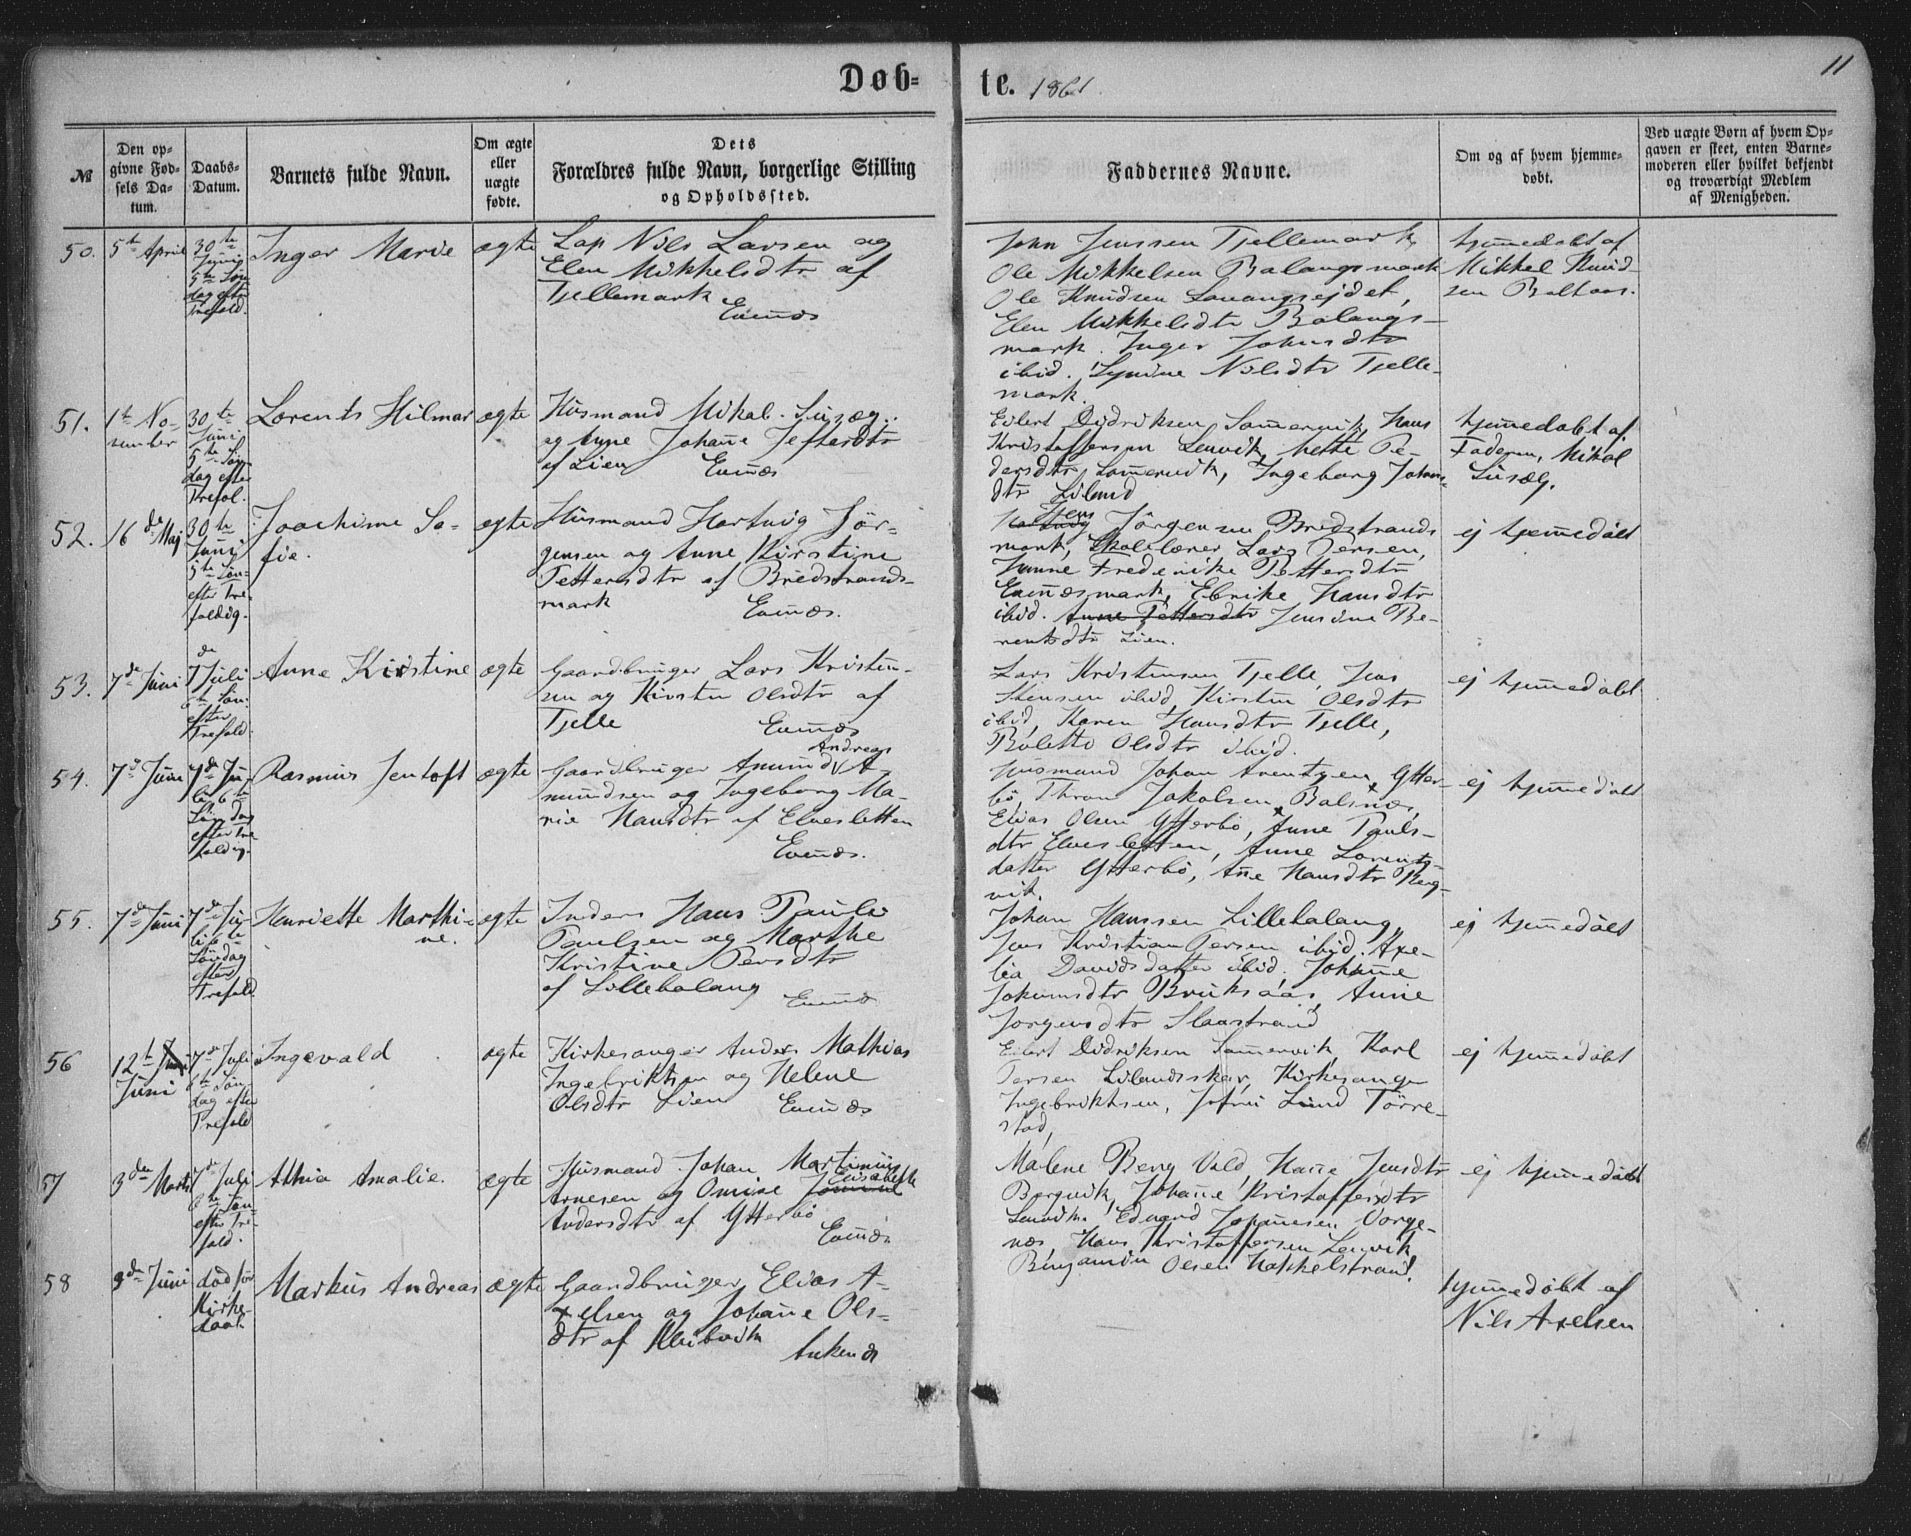 Døb-
te. 1861.
11
№
Den op-
givne Fød-
sels Da-
tum.
Daabs-
Datum.
Barnets fulde Navn.
Om ægte
eller
uægte
fødte.
Dets
Forældres fulde Navn, borgerlige Stilling
og Opholdssted.
Faddernes Navne.
Om og af hvem hjemme-
døbt.
Ved uægte Børn af hvem Op-
gaven er skeet, enten Barne-
moderen eller hvilket bekjendt
og troværdigt Medlem
af Menigheden.
50.
5te April
30te
Juni
5te Søn
dag efter
Trefold.
Inger Marie
ægte
Lap Nils Larsen og
Elen Mikkelsdtr af
Tjellemark
Evenæs
John Jenssen Tjellemark,
Ole Mikkelsen Balangsmark
Ole Knudsen Lavangsejdet,
Elen Mikkelsdtr Balangs-
mark. Inger Johnsdtr
ibid. Nilsdtr Tjelle-
mark.
hjemmedøbt af
Mikkel Knud-
sen
51.
1te No-
vember
30te
Juni
5te Søn
dag efter
Trefol.
Lorents Hilmar
ægte
Husmand Mikal
og Johanne
af Lien Evenæs
Eilert Didriksen Sommervik, Hans
Kristoffersen Lenvik, Pe-
dersdtr Sommervik, Ingeborg Johans-
dtr Liland
hjemmedøbt af
Faderen, Mikal
52.
16de Maj
30te
Juni
5te Søn-
efter Tre-
foldig.
Joachime So-
fie.
ægte
Husmand Hartvig Jør-
gensen og Anne Kirstine
Pettersdtr af Bredstrands-
mark Evenæs.
Jens
Hartvig Jørgensen Bredstrands
mark, Skolelærer Lars
Hanne Frederike Pettersdtr
Evenæsmark, Ebrike Hansdtr
ibid. Anne Pettersdtr Jensine Be-
rentsdtr Lien.
ej hjemmedøbt
53.
7de Juni
7de Juli
6te Søn.
efter
Trefold.
Anne Kirstine
ægte
Gaardbruger Lars Kristen-
sen og Kirsten Olsdtr af
Tjelle Evenæs
Lars Kristensen Tjelle, Jens
ibid, Kirsten Olsdtr
ibid, Karen Hansdtr Tjelle,
Bolette Olsdtr ibid.
ej hjemmedøbt
54.
7de Juni
7de Ju-
li 6te
Søndag
efter Tre
foldig.
Rasmus Jentoft
ægte
Andreas
Gaardbruger Amund A-
mundsen og Ingeborg Ma-
rie Hansdtr af Elvesletten
Evenæs.
Husmand Johan Arentsen, Ytter-
bø, Jakobsen Balsnes,
Elias Olsen Ytterbø, Anne Pauls-
dtr Elvesletten, Anne Lorents-
datter Ytterbø, Ane Hansdtr Berg-
vik.
ej hjemmedøbt
55.
7de Juni
7de Ju
li 6te
Søndag
efter
Trefold.
Henriette Marthi-
ne.
ægte
Inders Hans Pauls
Paulsen og Marthe
Kristine Persdtr
af Lillebalang
Johan Hanssen Lillebalang
Jens Kristian Persen ibid. Axe-
lia Davidsdatter ibid. Johanne
Jokumsdtr Anne
Jorgensdtr
ej hjemmedøbt
56
12te Juni
Juni
7de Juli
6te Søn-
dag efter
Trefold
Ingevald
ægte
Kirkesanger Anders Mathias
Ingebriktsen og Helene
Olsdtr Lien Evenæs
Eilert Didriksen Sommervik, Karl
Persen Lilandsskar, Kirkesanger
Ingebriktsen, Lund Tørre-
stad,
ej hjemmedøbt
57
3die Marts
7de Juli
6te Søn-
efter Tre-
fold.
Athia Amalie.
ægte
Husmand Johan Martinus
Elisabeth
Arnesen og Omine
Andersdtr af Ytterbø
Evenæs
Malene Berg Vold, Jensdtr
Bergvik, Johanne Kristoffersdtr
Lenvik. Edvard Johannesen
næs, Hans Kristoffersen Lenvik
Benjamin Olsen
ej hjemmedøbt
58
3die Juni
død før
Kirke-
daab.
Markus Andreas
ægte
Gaardbruger Elias A-
xelsen og Johanne Ols-
dtr af
Ankenæs
hjemmedøbt af
Nils Axelsen